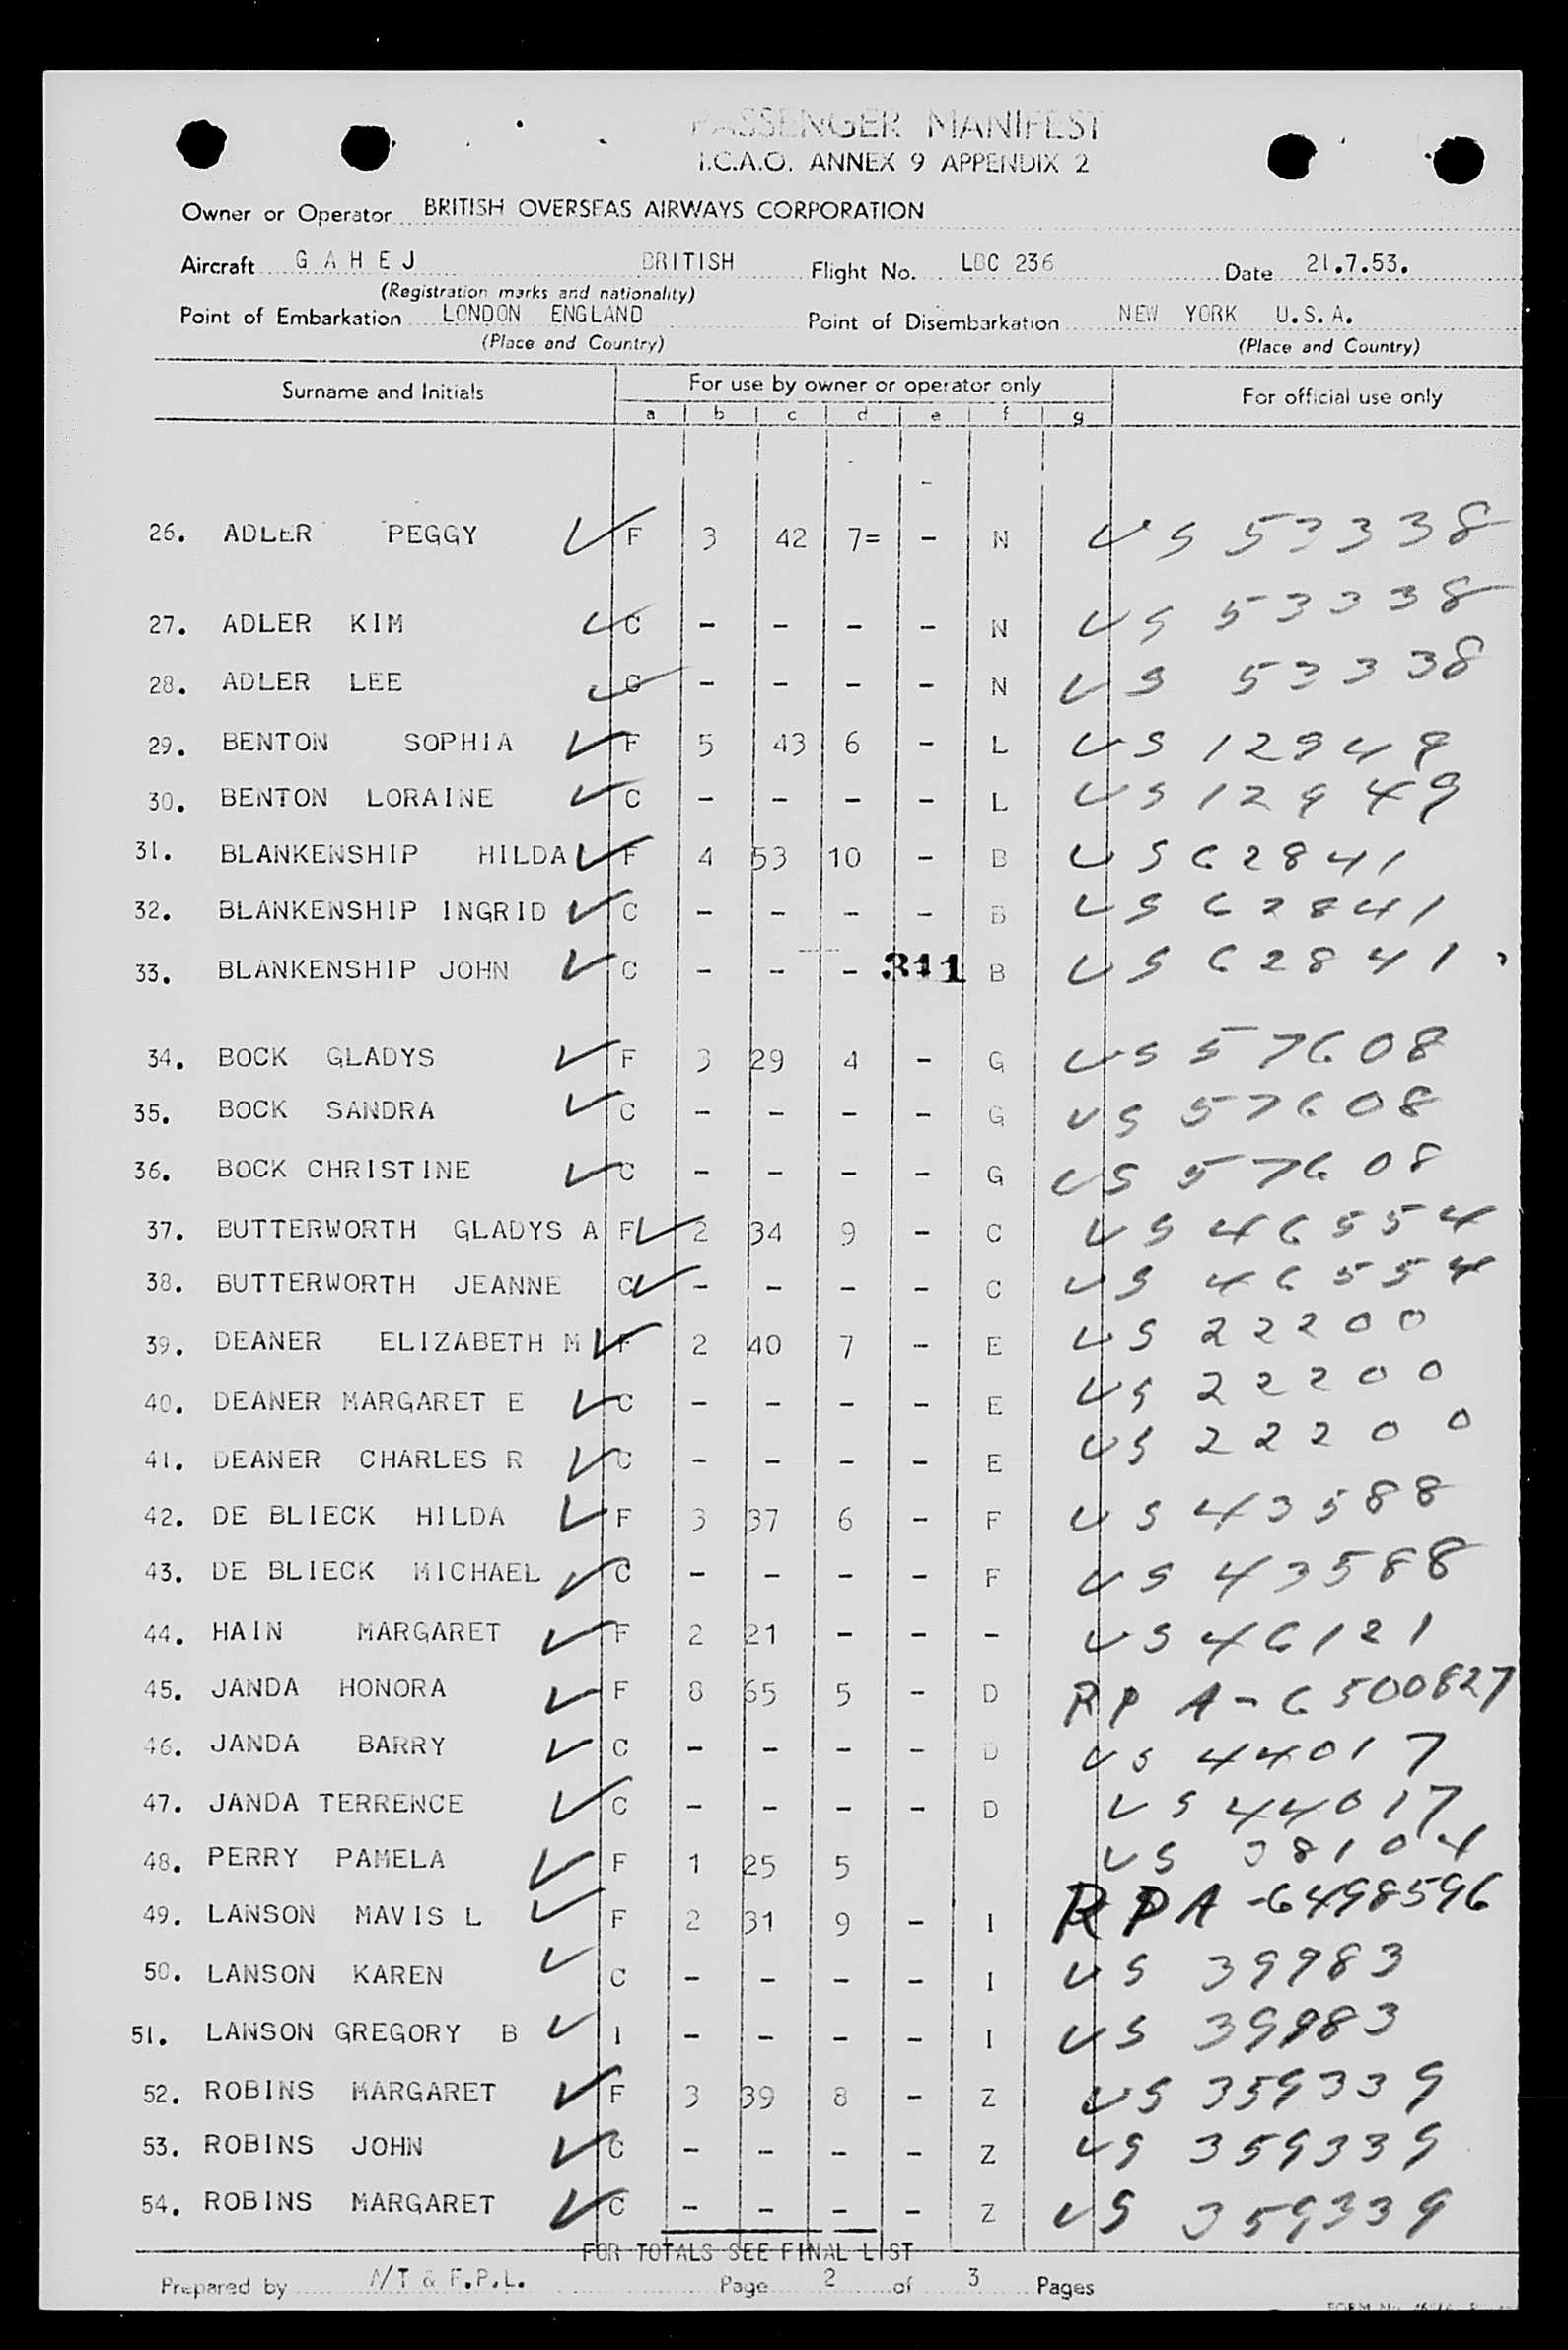 PASSENGER MANIFEST
I.C.A.O. ANNEX 9 APPENDIX 2
Owner or Operator BRITISH OVERSEAS AIRWAYS CORPORATION
Aircraft G A H E J BRITISH Flight No. LBC 236 Date 21.7.53.
(Registration marks and nationality)
Point of Embarkation LONDON ENGLAND Point of Disembarkation NEW YORK U.S.A.
(Place and Country) (Place and Country)
Surname and Initials For use by owner or operator only For official use only
a b c d e f g
26. ADLER PEGGY F 3 42 7= - N US 53338
27. ADLER KIM C - - - - N US 53338
28. ADLER LEE C - - - - N US 53338
29. BENTON SOPHIA F 5 43 6 - L US 12949
30. BENTON LORAINE C - - - - L US 12949
31. BLANKENSHIP HILDA F 4 53 10 - B US 62841
32. BLANKENSHIP INGRID C - - - - B US 62841
33. BLANKENSHIP JOHN C - - - 311 B US 62841
34. BOCK GLADYS F 3 29 4 - G US 57608
35. BOCK SANDRA C - - - - G US 57608
36. BOCK CHRISTINE C - - - - G US 57608
37. BUTTERWORTH GLADYS A F 2 34 9 - C US 46554
38. BUTTERWORTH JEANNE C - - - - C US 46554
39. DEANER ELIZABETH M F 2 40 7 - E US 22200
40. DEANER MARGARET E C - - - - E US 22200
41. DEANER CHARLES R C - - - - E US 22200
42. DE BLIECK HILDA F 3 37 6 - F US 43588
43. DE BLIECK MICHAEL C - - - - F US 43588
44. HAIN MARGARET F 2 21 - - - US 46121
45. JANDA HONORA F 8 65 5 - D RP A-6500827
46. JANDA BARRY C - - - - D US 44017
47. JANDA TERRENCE C - - - - D US 44017
48. PERRY PAMELA F 1 25 5 US 38104
49. LANSON MAVIS L F 2 31 9 - I RPA-6498596
50. LANSON KAREN C - - - - I US 39983
51. LANSON GREGORY B I - - - - I US 39983
52. ROBINS MARGARET F 3 39 8 - Z US 359339
53. ROBINS JOHN C - - - - Z US 359339
54. ROBINS MARGARET C - - - - Z US 359339
FOR TOTALS SEE FINAL LIST
Prepared by N/T & F.P.L. Page 2 of 3 Pages